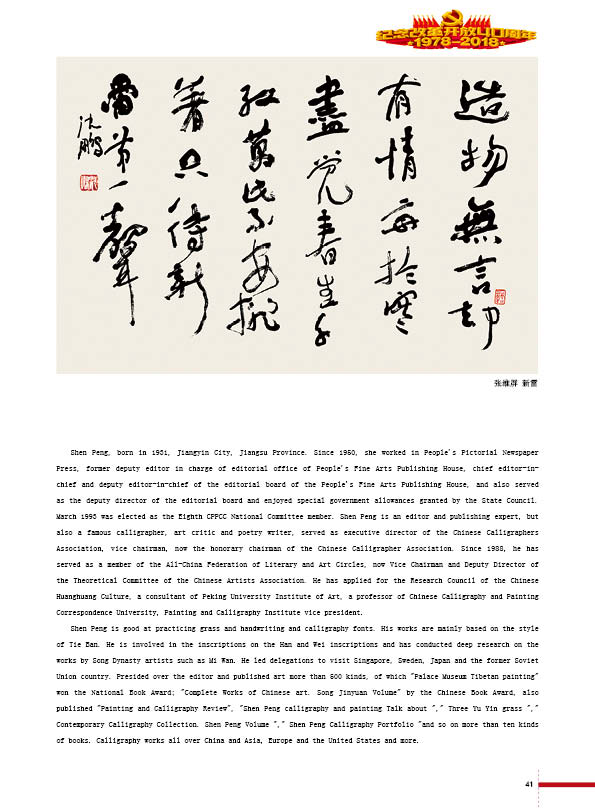 纪念改革开放40周年
1978-2018
造物無言却
有情每於寒
盡覺春生千
紅萬紫安排
著只待新
雷第一聲
沈鹏
张维屏 新雷
Shen Peng, born in 1931, Jiangyin City, Jiangsu Province. Since 1950, she worked in People's Pictorial Newspaper
Press, former deputy editor in charge of editorial office of People's Fine Arts Publishing House, chief editor-in-
chief and deputy editor-in-chief of the editorial board of the People's Fine Arts Publishing House, and also served
as the deputy director of the editorial board and enjoyed special government allowances granted by the State Council.
March 1993 was elected as the Eighth CPPCC National Committee member. Shen Peng is an editor and publishing expert, but
also a famous calligrapher, art critic and poetry writer, served as executive director of the Chinese Calligraphers
Association, vice chairman, now the honorary chairman of the Chinese Calligrapher Association. Since 1988, he has
served as a member of the All-China Federation of Literary and Art Circles, now Vice Chairman and Deputy Director of
the Theoretical Committee of the Chinese Artists Association. He has applied for the Research Council of the Chinese
Huanghuang Culture, a consultant of Peking University Institute of Art, a professor of Chinese Calligraphy and Painting
Correspondence University, Painting and Calligraphy Institute vice president.
Shen Peng is good at practicing grass and handwriting and calligraphy fonts. His works are mainly based on the style
of Tie Ban. He is involved in the inscriptions on the Han and Wei inscriptions and has conducted deep research on the
works by Song Dynasty artists such as Mi Wan. He led delegations to visit Singapore, Sweden, Japan and the former Soviet
Union country. Presided over the editor and published art more than 500 kinds, of which "Palace Museum Tibetan painting"
won the National Book Award; "Complete Works of Chinese art. Song Jinyuan Volume" by the Chinese Book Award, also
published "Painting and Calligraphy Review", "Shen Peng calligraphy and painting Talk about "," Three Yu Yin grass ","
Contemporary Calligraphy Collection. Shen Peng Volume "," Shen Peng Calligraphy Portfolio "and so on more than ten kinds
of books. Calligraphy works all over China and Asia, Europe and the United States and more.
41